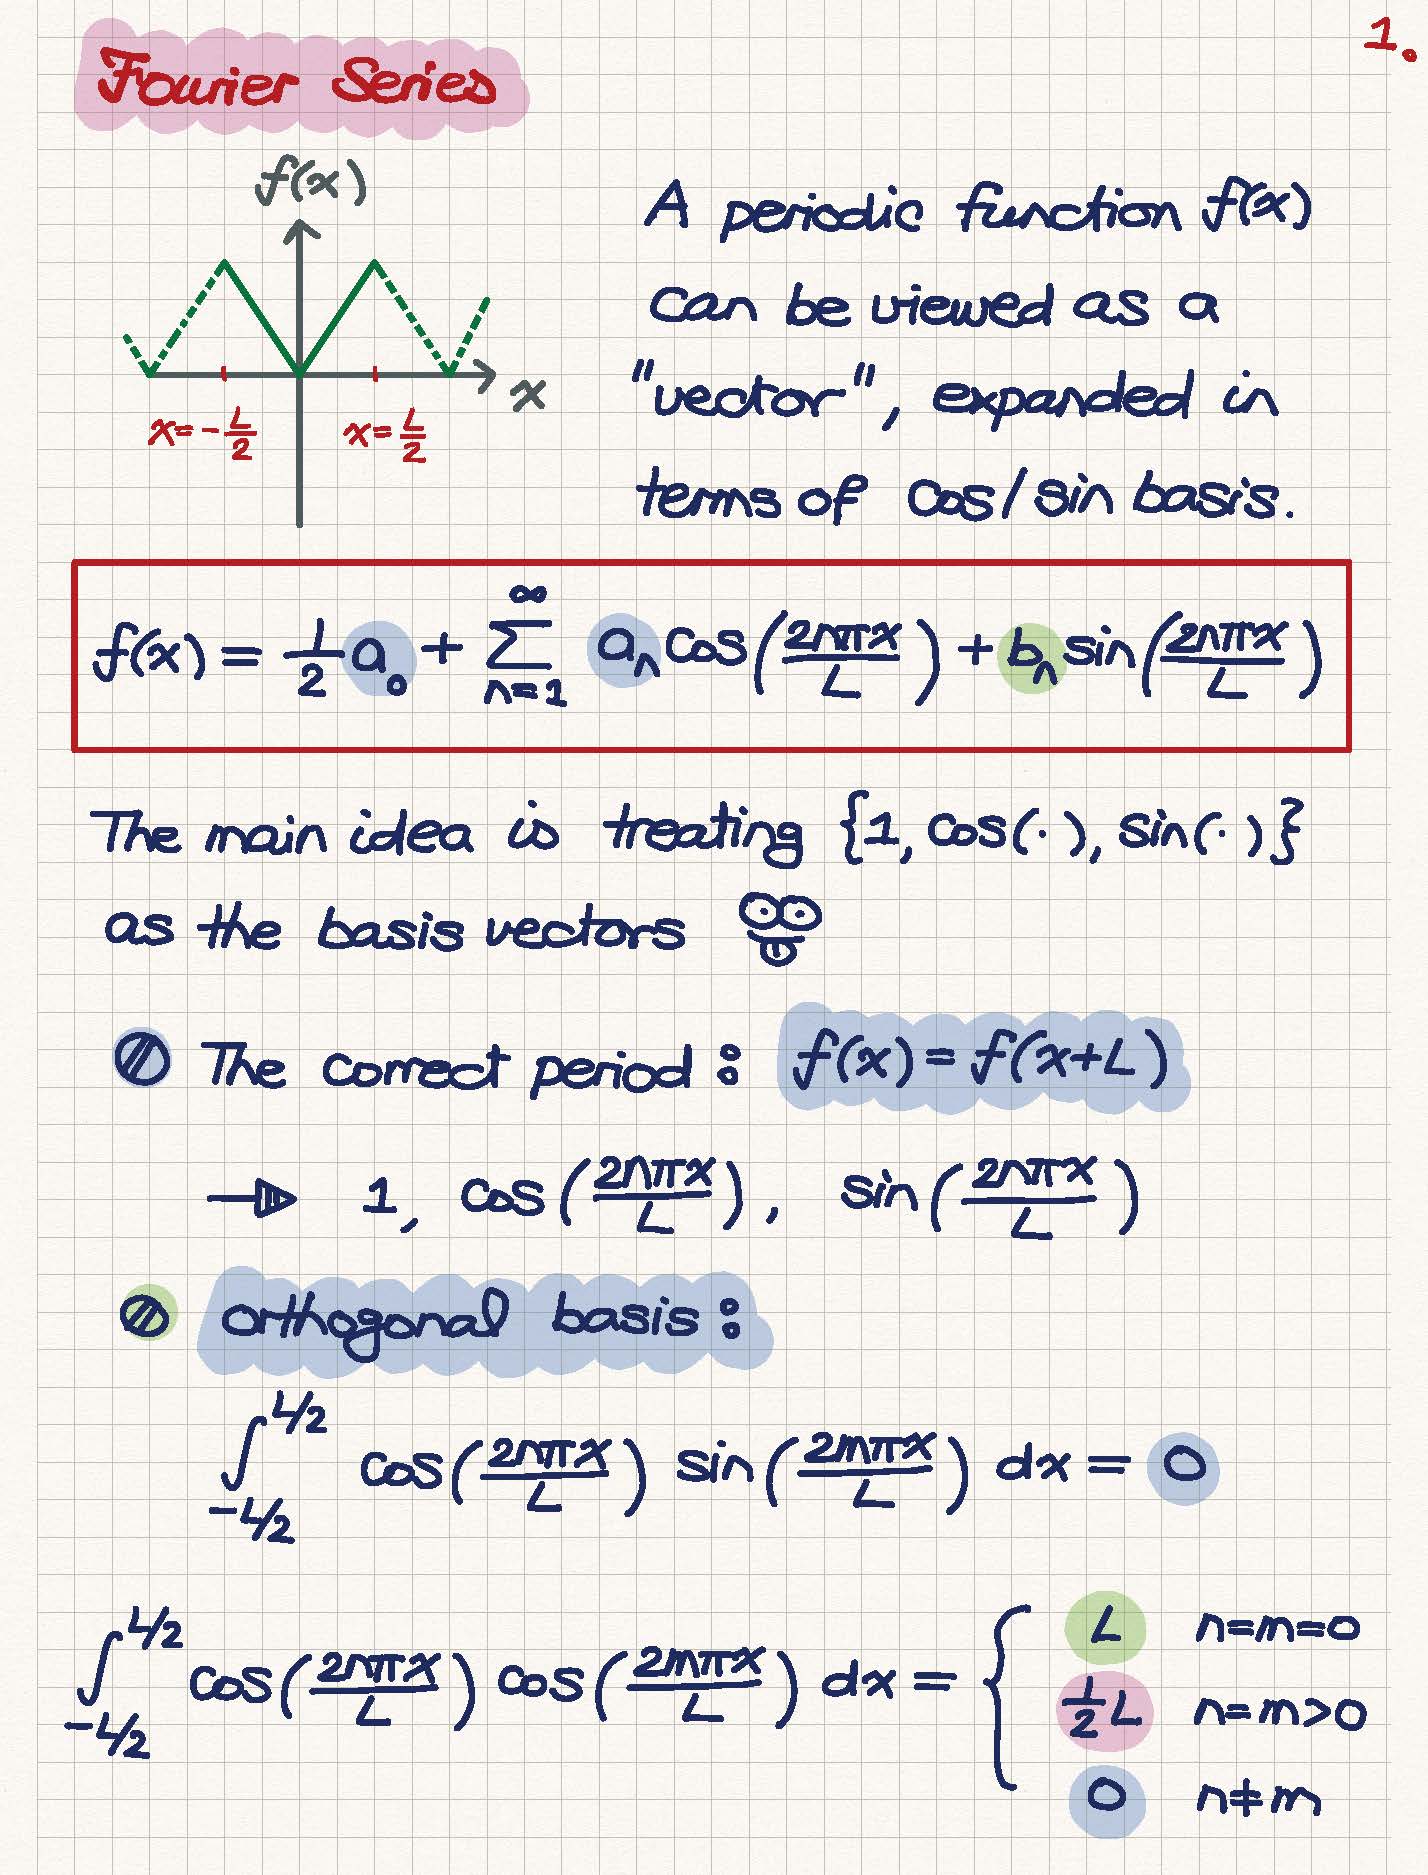 1.
Fourier Series
f(x)
x
x = -L/2
x = L/2
A periodic function f(x)
can be viewed as a
"vector", expanded in
terms of cos/sin basis.
f(x) = 1/2 a₀ + ∑_{n=1}^{∞} aₙ cos(2nπx/L) + bₙ sin(2nπx/L)
The main idea is treating {1, cos(·), sin(·)}
as the basis vectors
The correct period: f(x) = f(x+L)
1, cos(2nπx/L), sin(2nπx/L)
orthogonal basis:
∫_{-L/2}^{L/2} cos(2nπx/L) sin(2mπx/L) dx = 0
∫_{-L/2}^{L/2} cos(2nπx/L) cos(2mπx/L) dx = {
L n=m=0
1/2 L n=m>0
0 n≠m